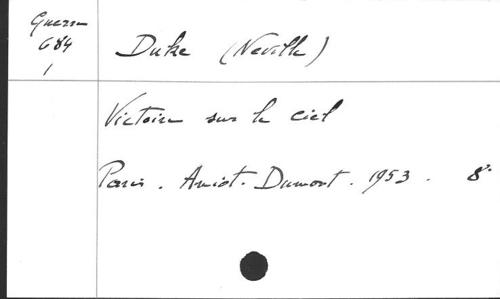 Guerre
684
1
Duke (Neville)
Victoire sur le ciel
Paris. Amiot-Dumont. 1953. 8°